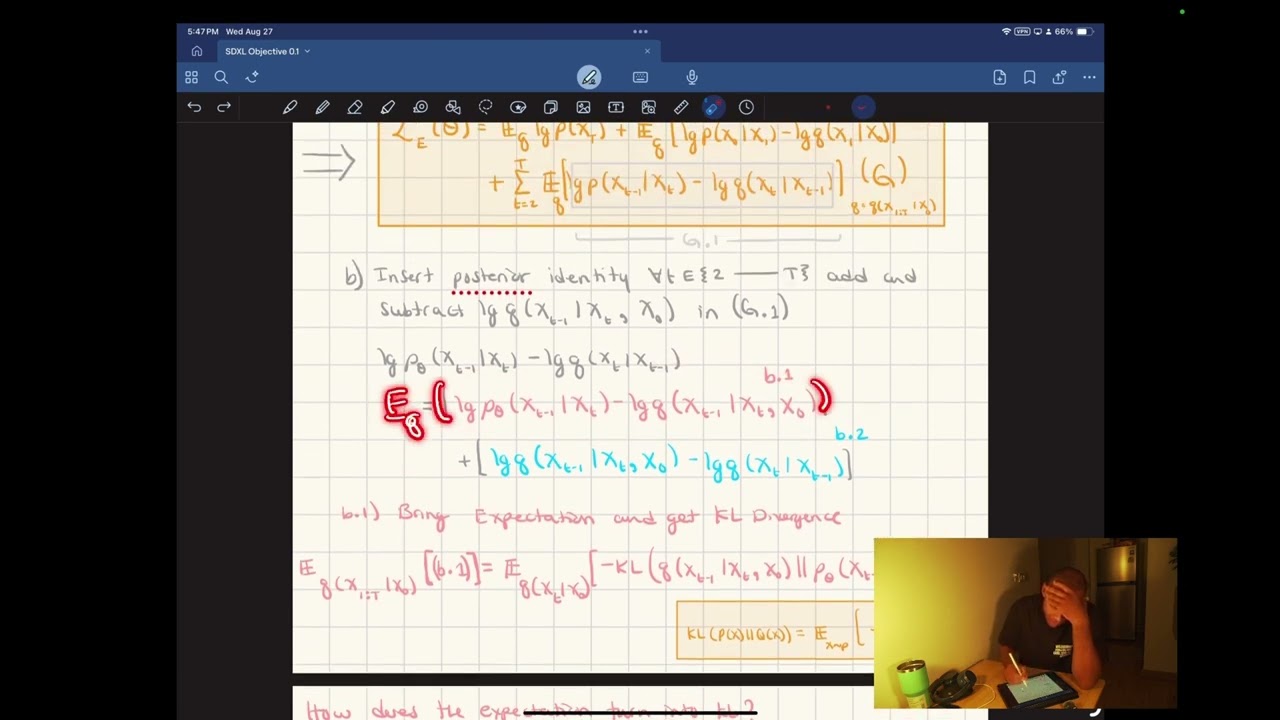 5:47 PM Wed Aug 27
VPN 66%
SDXL Objective 0.1
ℒ_E(θ) = 𝔼_q lg p(x_T) + 𝔼_q [lg p(x_0|x_1) - lg q(x_1|x_0)]
⟹ + Σ_{t=2}^{T} 𝔼_q [lg p(x_{t-1}|x_t) - lg q(x_t|x_{t-1})] (G)
q = q(x_{1:T}|x_0)
G.1
b) Insert posterior identity ∀t∈{2 — T} add and
subtract lg q(x_{t-1}|x_t, x_0) in (G.1)
lg p_θ(x_{t-1}|x_t) - lg q(x_t|x_{t-1})
b.1
E_q = (lg p_θ(x_{t-1}|x_t) - lg q(x_{t-1}|x_t, x_0))
b.2
+ [lg q(x_{t-1}|x_t, x_0) - lg q(x_t|x_{t-1})]
b.1) Bring Expectation and get KL Divergence
𝔼_{q(x_{1:T}|x_0)} [(b.1)] = 𝔼_{q(x_t|x_0)} [-KL(q(x_{t-1}|x_t, x_0) || p_θ(x_{t-
KL(P(x)||Q(x)) = 𝔼_{x~p} [
How does the expectation turn into KL?